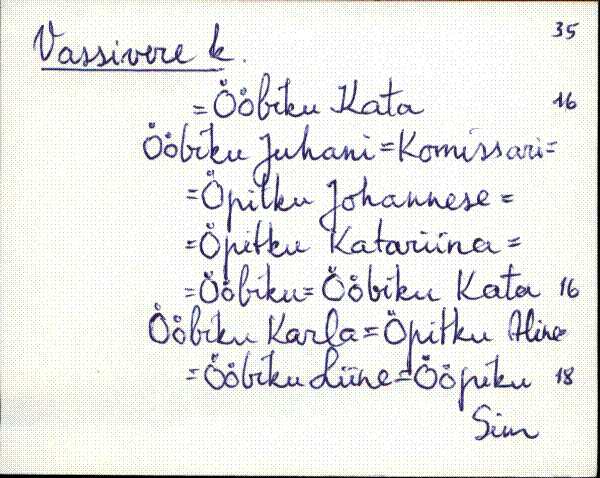 35
Vassivere k.
=Ööbiku Kata 16
Ööbiku Juhani=Komissari=
=Öpitku Johannese=
=Öpitku Katariina=
=Ööbiku=Ööbiku Kata 16
Ööbiku Karla=Öpitku Aline=
=Ööbiku Liine=Ööpiku 18